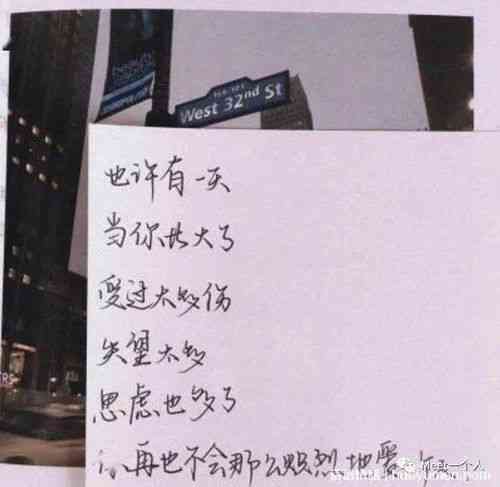 West 32nd St
也许有一天
当你长大了
受过太多伤
失望太多
思虑也多了
你再也不会那么炽烈地爱
Meet一个人